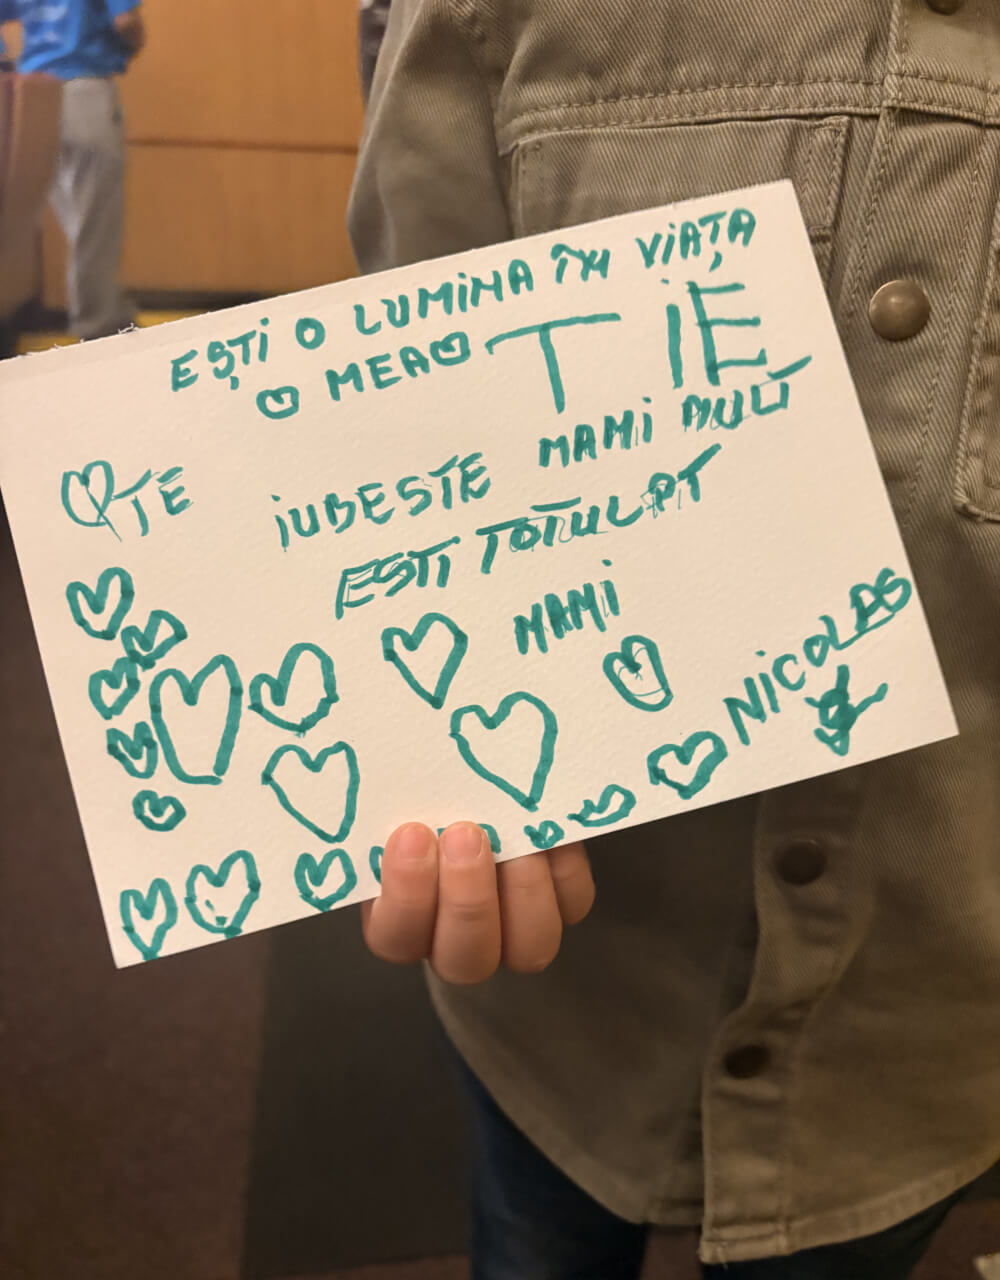 EȘTI O LUMINA ÎN VIAȚA
MEA
ȚIE
TE IUBESTE MAMI MULT
ESTI TOTUL PT
MAMI
NICOLAS